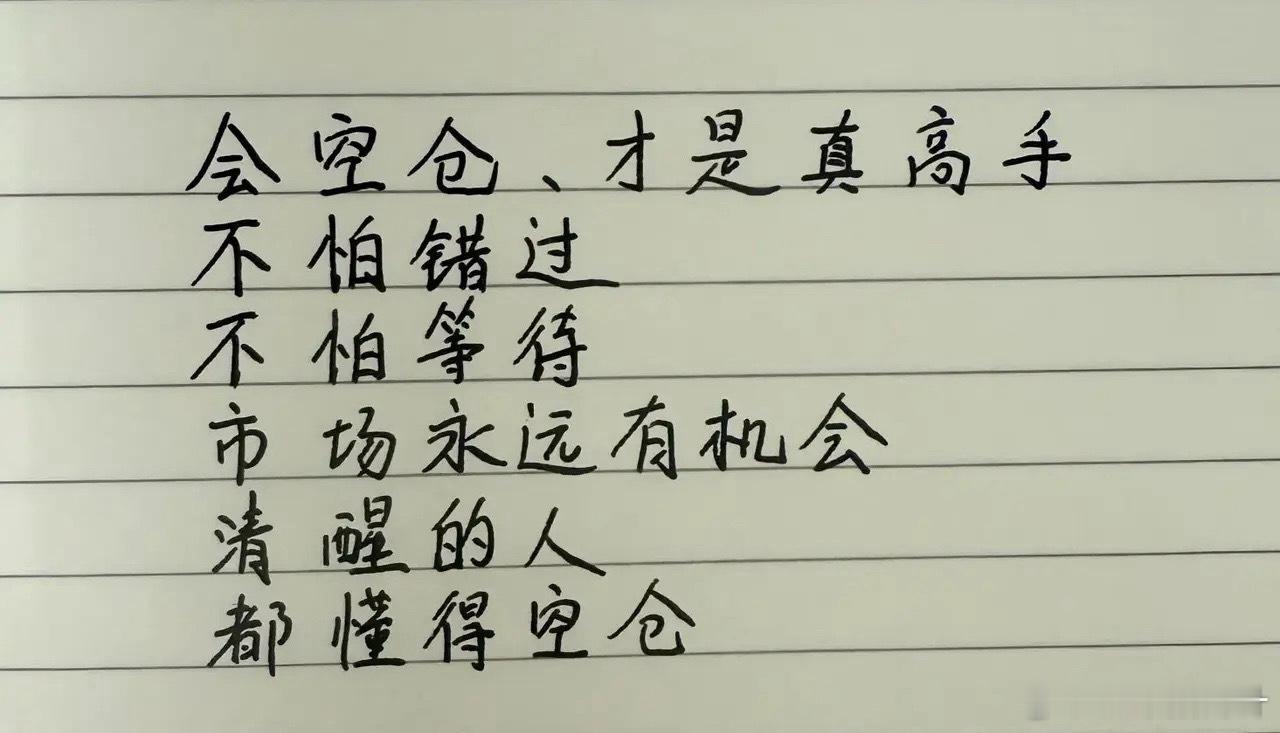 会空仓、才是真高手
不怕错过
不怕等待
市场永远有机会
清醒的人
都懂得空仓